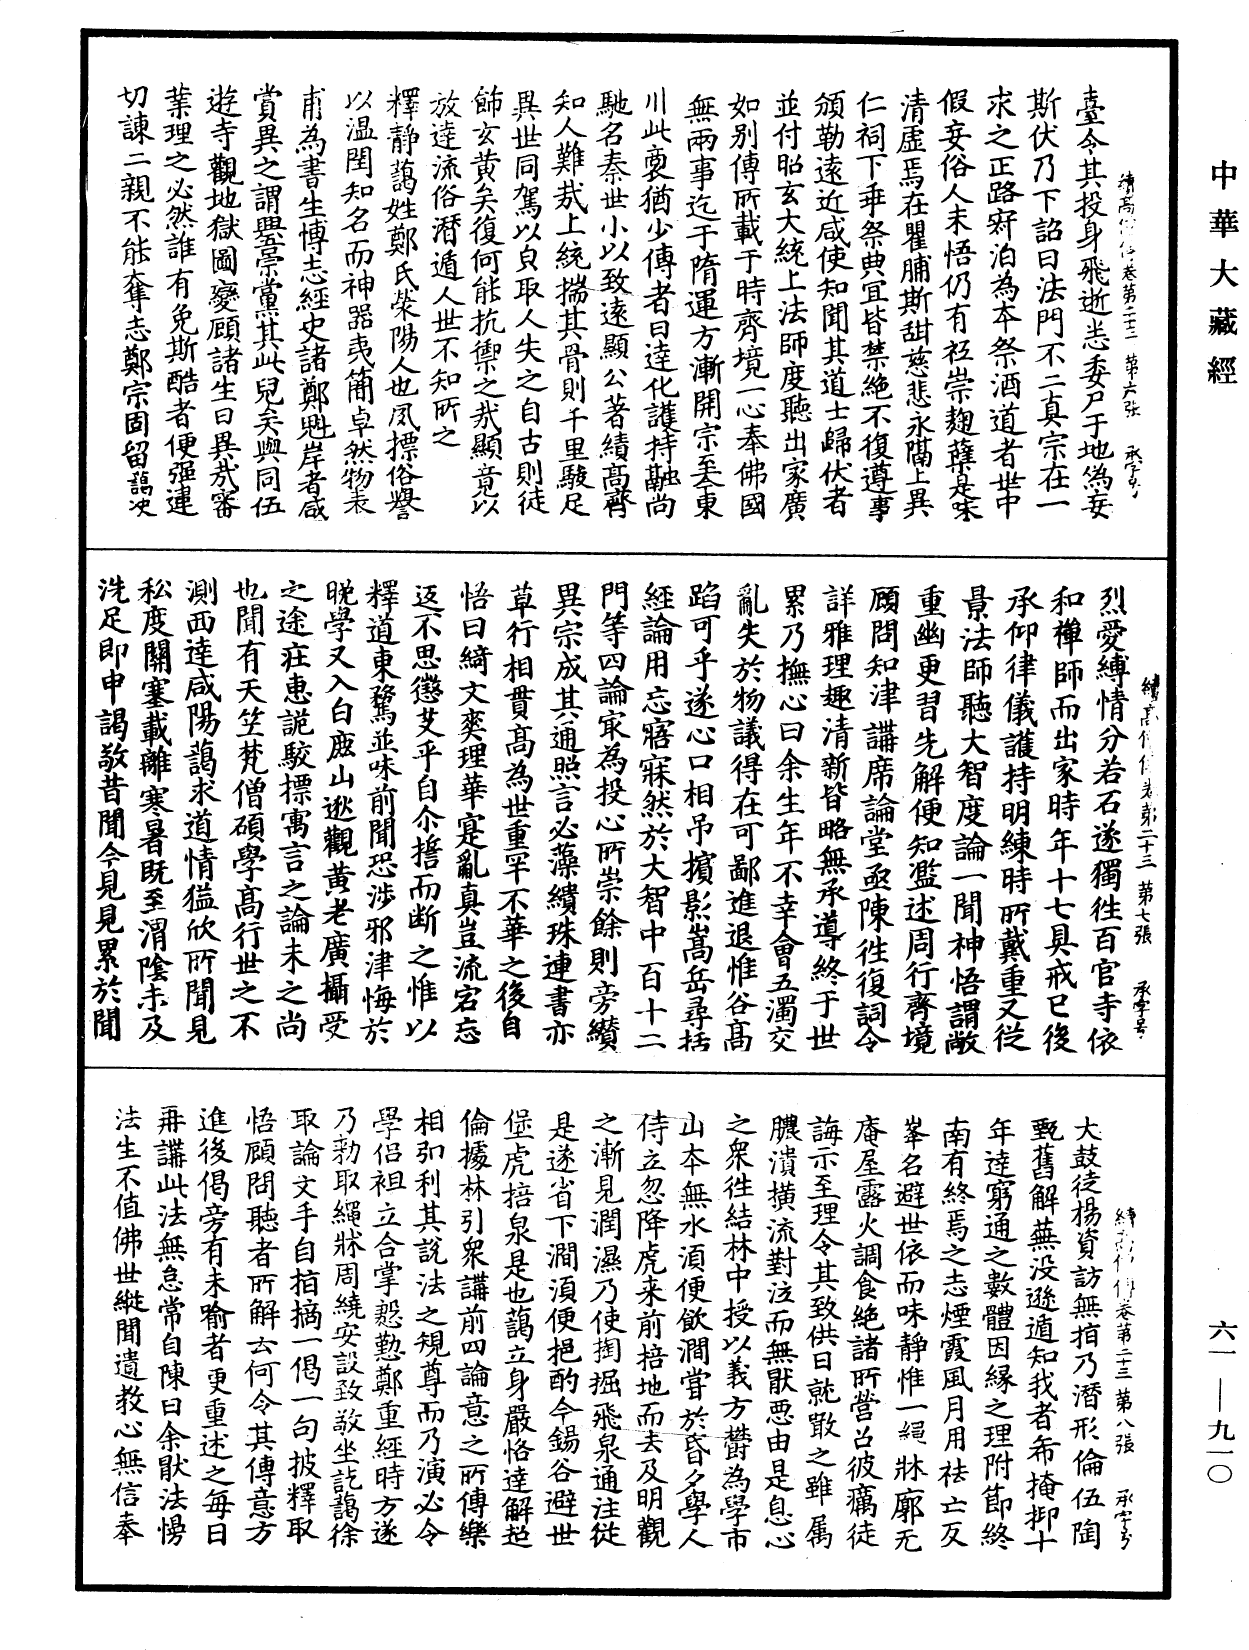 中華大藏經
臺令其投身飛逝悉委尸于地偽妄
斯伏乃下詔曰法門不二真宗在一
求之正路寂泊為本祭酒道者世中
假妄俗人未悟仍有祇崇麴糵是味
清虛焉在瞿脯斯甜慈悲永隔上異
仁祠下乖祭典宜皆禁絕不復遵事
頒勒遠近咸使知聞其道士歸伏者
並付昭玄大統上法師度聽出家廣
如別傳所載于時齊境一心奉佛國
無兩事迄于隋運方漸開宗至今東
川此裒猶少傳者曰達化護持融尚
馳名秦世小以致遠顯公著績高齊
知人難哉上統揣其骨則千里駿足
異世同駕以貞取人失之自古則徒
飾玄黃矣復何能抗禦之哉顯竟以
放達流俗潛遁人世不知所之
釋靜藹姓鄭氏滎陽人也夙標俗譽
以溫閏知名而神器夷簡卓然物表
甫為書生博志經史諸鄭魁岸者咸
賞異之謂興宗黨其此兒矣與同伍
遊寺觀地獄圖變顧諸生曰異哉審
業理之必然誰有免斯酷者便強違
切諫二親不能奪志鄭宗固留藹決
續高僧傳卷第二十三 第六張 承字号
烈愛縛情分若石遂獨往百官寺依
和禪師而出家時年十七具戒已後
承仰律儀護持明練時所戴重又從
景法師聽大智度論一聞神悟謂敞
重幽更習先解便知濫述周行齊境
顧問知津講席論堂亟陳往復詞令
詳雅理趣清新皆略無承導終于世
累乃撫心曰余生年不幸會五濁交
亂失於物議得在可鄙進退惟谷高
蹈可乎遂心口相吊擯影嵩岳尋括
經論用忘寤寐然於大智中百十二
門等四論寂為投心所崇餘則旁纘
異宗成其通照言必藻繢珠連書亦
草行相貫高為世重罕不華之後自
悟曰綺文爽理華寔亂真豈流宕忘
返不思懲艾乎自尒誓而断之惟以
釋道東騖並味前聞恐涉邪津悔於
晚學又入白鹿山逖觀黃老廣攝受
之途莊惠詭駮標寓言之論未之尚
也聞有天竺梵僧碩學高行世之不
測西達咸陽藹求道情猛欣所聞見
私度關塞載離寒暑既至渭陰未及
洗足即申謁敬昔聞今見見累於聞
續高僧傳卷第二十三 第七張 承字号
大鼓徒揚資訪無指乃潛形倫伍陶
甄舊解蕪没遜遁知我者希掩抑十
年達窮通之數體因緣之理附節終
南有終焉之志煙霞風月用祛亡反
峯名避世依而味靜惟一繩牀廓无
庵屋露火調食絕諸所營召彼癘徒
誨示至理令其致供日就噉之雖属
膿潰橫流對泣而無猒惡由是息心
之衆往結林中授以義方欝為學市
山本無水須便飲澗嘗於昏夕學人
侍立忽降虎來前掊地而去及明觀
之漸見潤濕乃使掏掘飛泉通注從
是遂省下澗須便挹酌今錫谷避世
堡虎掊泉是也藹立身嚴恪達解超
倫據林引衆講前四論意之所傳樂
相弘利其說法之規尊而乃演必令
學侶袒立合掌慇懃鄭重經時方遂
乃勑取繩牀周繞安設致敬坐訖藹徐
取論文手自指摘一偈一句披釋取
悟顧問聽者所解云何令其傳意方
進後偈旁有未喻者更重述之每日
再講此法無怠常自陳曰余猒法慯
法生不值佛世縱聞遺教心無信奉
卷第二十三 第八張 承字号
六一—九一〇